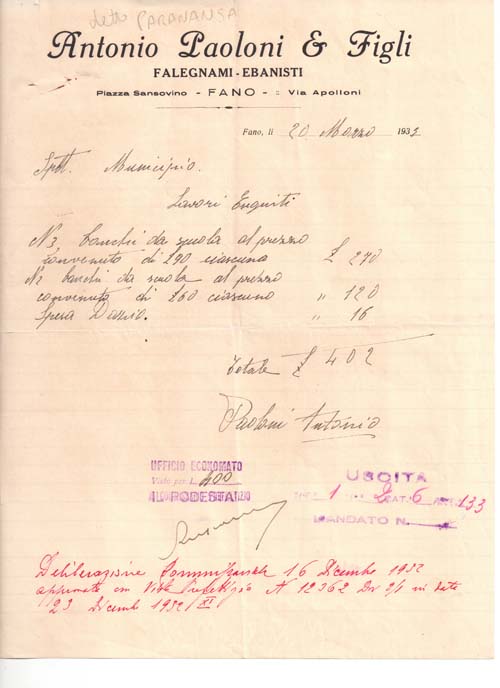 detto PARANANSA
Antonio Paoloni & Figli
FALEGNAMI - EBANISTI
Piazza Sansovino - FANO - :: Via Apolloni
Fano, li 20 Marzo 1933
Spett. Municipio.
Lavori Eseguiti
N 3 banchi da scuola al prezzo
convenuto di £90 ciascuno £ 270
N 2 banchi da scuola al prezzo
convenuto di £60 ciascuno " 120
Spesa Dazio. " 16
Totale £ 402
Paoloni Antonio
UFFICIO ECONOMATO
Visto per L. 400
IL PODESTÀ
USCITA
1 CAT. 6 ART. 133
MANDATO N.
Deliberazione 16 Dicembre 1932
approvata con Visto Prefettizio N 12362 Div 2/1 in data
23 Dicembre 1932 XI